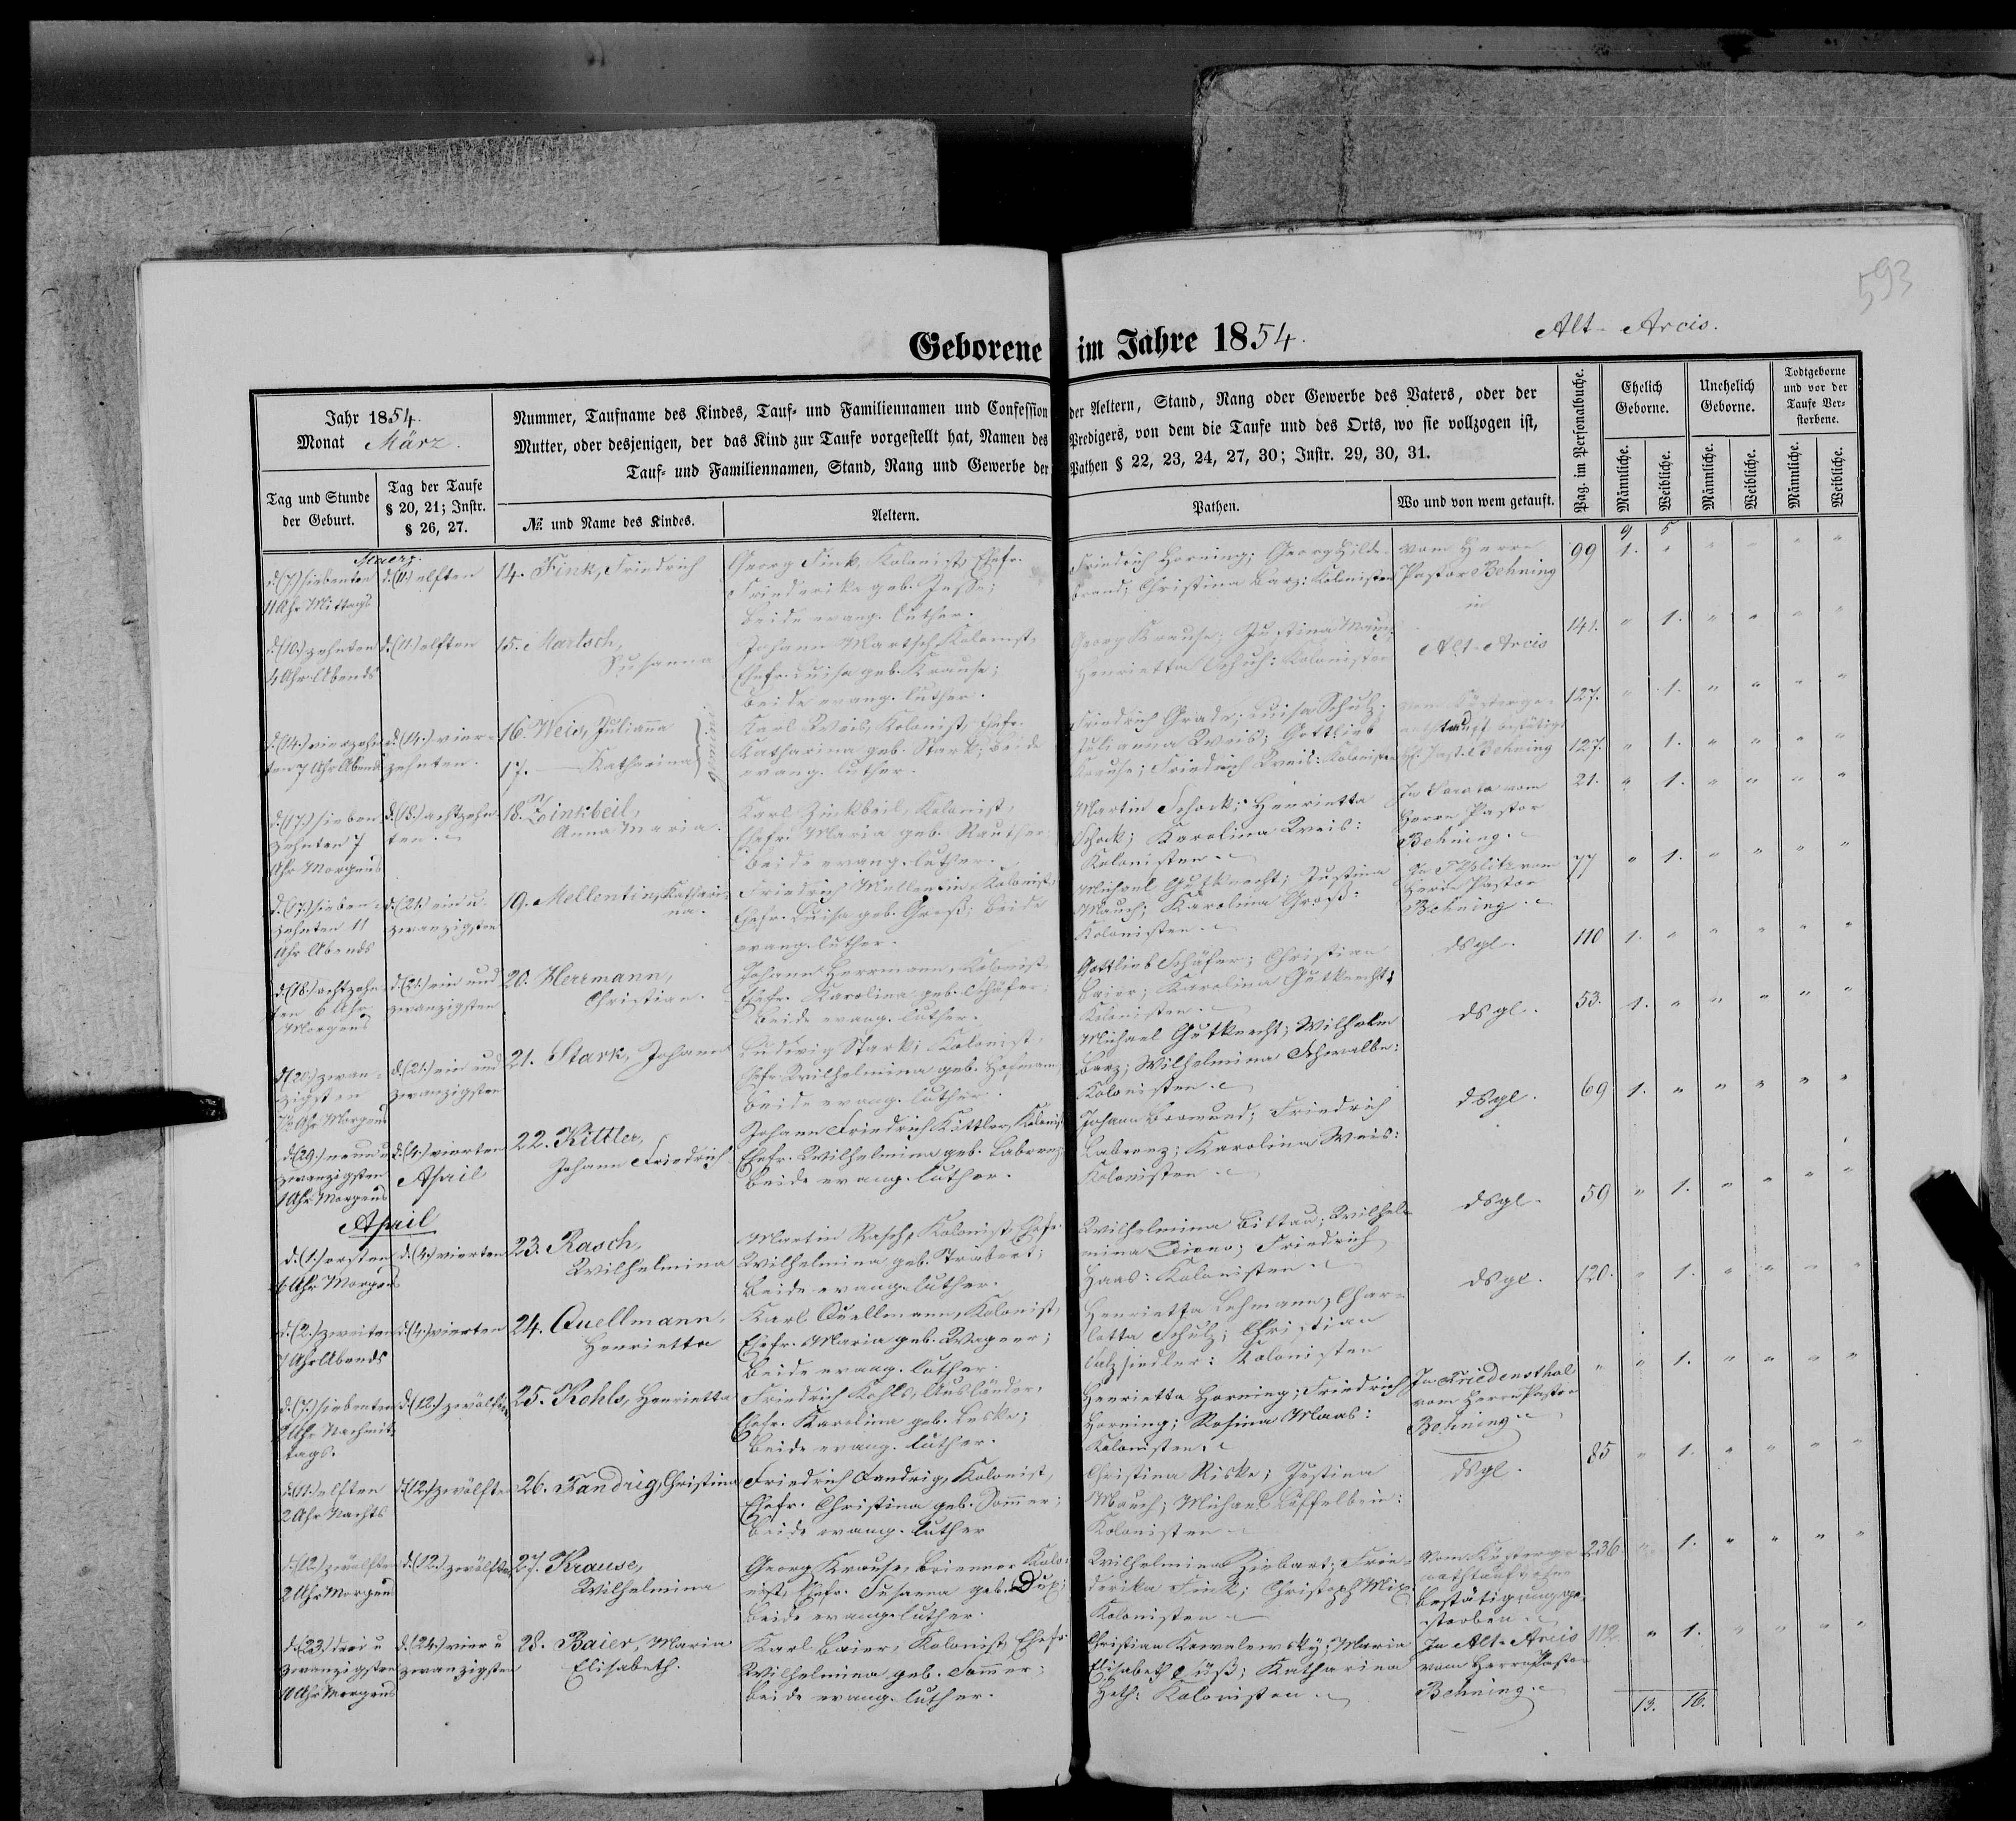 593
Alt-Arcis.
Geborene im Jahre 1854.
Jahr 1854.
Monat März.
Tag und Stunde der Geburt.
Tag der Taufe § 20, 21; Instr. § 26, 27.
Nummer, Taufname des Kindes, Tauf- und Familiennamen und Confession der Aeltern, Stand, Rang oder Gewerbe des Vaters, oder der
Mutter, oder desjenigen, der das Kind zur Taufe vorgestellt hat, Namen des Predigers, von dem die Taufe und des Orts, wo sie vollzogen ist,
Tauf- und Familiennamen, Stand, Rang und Gewerbe der Pathen § 22, 23, 24, 27, 30; Instr. 29, 30, 31.
№ und Name des Kindes.
Aeltern.
Pathen.
Wo und von wem getauft.
Pag. im Personalbuche.
Ehelich Geborne.
Unehelich Geborne.
Todtgeborne und vor der Taufe Verstorbene.
Männliche. Weibliche. Männliche. Weibliche. Männliche. Weibliche.
9 5
d. (7.) siebenten
11 Uhr Mittags
d. (11.) elften
14. Fink, Friedrich
Georg Fink, Kolonist, Ehefr.
Friederike geb. Jesse;
beide evang. luther.
Friedrich Horning; Georg Hilde-
brand; Christina Barz: Kolonisten
vom Herrn
Pastor Behning
in
Alt-Arcis
99 1. " " " " "
d. (10.) zehnten
4 Uhr Abends
d. (11.) elften
15. Martsch,
Susanna
Johann Martsch, Kolonist,
Ehefr. Luisa geb. Krause;
beide evang. luther.
Georg Krause; Justina
Henrietta Schuh: Kolonisten
141. " 1. " " " "
d. (14.) vierzehn-
ten 7 Uhr Abends
d. (14.) vier-
zehnten.
16. Weis, Julianna
17. — Katharina
Karl Weis, Kolonist, Ehefr.
Katharina geb. Stark; beide
evang. luther.
Friedrich Grade; Luisa Schulz;
Julianna Weis; Gottlieb
Krause; Friedrich Weis: Kolonisten
Past. Behning
127. " 1. " " " "
127. " 1. " " " "
d. (17.) sieben-
zehnten 7
Uhr Morgens
d. (18.) achtzehn-
ten.
18. Zinkbeil,
Anna Maria.
Karl Zinkbeil, Kolonist,
Ehefr. Maria geb. Rauther;
beide evang. luther.
Martin Schock; Henrietta
Schock; Karolina Weis:
Kolonisten.
In Sarata vom
Herrn Pastor
Behning.
21. " 1. " " " "
d. (17.) sieben-
zehnten 11
Uhr Abends
d. (21.) ein u.
zwanzigsten
19. Mellentin, Kathari-
na.
Friedrich Mellentin, Kolonist,
Ehefr. Luisa geb. Groß; beide
evang. luther.
Michael Gutknecht; Justina
Mauch; Karolina Groß:
Kolonisten.
In Teplitz vom
Herrn Pastor
Behning.
77 " 1. " " " "
d. (18.) achtzehn-
ten 6 Uhr
Morgens
d. (21.) ein und
zwanzigsten
20. Herrmann,
Christian.
Johann Herrmann, Kolonist,
Ehefr. Karolina geb. Schäfer;
beide evang. luther.
Gottlieb Schäfer; Christian
Baier; Karolina Gutknecht:
Kolonisten.
dsgl.
110 1. " " " " "
d. (20.) zwan-
zigsten
Uhr Morgens
d. (21.) ein und
zwanzigsten
21. Stark, Johann
Ludwig Stark; Kolonist,
Ehefr. Wilhelmina geb. Hofmann,
beide evang. luther.
Michael Gutknecht; Wilhelm
Barz; Wilhelmina Schwalbe:
Kolonisten.
dsgl.
53. 1. " " " " "
d. (29.) neun u.
zwanzigsten
1 Uhr Morgens
d. (4.) vierten
April
22. Kittler,
Johann Friedrich
Johann Friedrich Kittler, Kolonist
Ehefr. Wilhelmina geb. Labrenz;
beide evang. luther.
Johann Bormund; Friedrich
Labrenz; Karolina Weis:
Kolonisten.
dsgl.
69 1. " " " " "
April
d. (1.) ersten
6 Uhr Morgens
d. (4.) vierten
23. Rasch,
Wilhelmina
Martin Rasch, Kolonist, Ehefr.
Wilhelmina geb. Trabert;
beide evang. luther.
Wilhelmina Bittau; Wilhel-
mina; Friedrich
Haas: Kolonisten.
dsgl.
59 " 1. " " " "
d. (2.) zweiten
7 Uhr Abends
d. (4.) vierten
24. Quellmann,
Henrietta
Karl Quellmann, Kolonist,
Ehefr. Maria geb. Wagner;
beide evang. luther.
Henrietta Lehmann; Char-
lotta Schulz; Christian
Salzsiedler: Kolonisten
dsgl.
120. " 1. " " " "
d. (7.) siebenten
2 Uhr Nachmit-
tags.
d. (12.) zwölften
25. Kohls, Henrietta
Friedrich Kohls, Ausländer,
Ehefr. Karolina geb. Leske;
beide evang. luther.
Henrietta Horning; Friedrich
Horning; Rosina Maas:
Kolonisten.
In Friedensthal
vom Herrn Pastor
Behning
" " 1. " " " "
d. (11.) elften
2 Uhr Nachts
d. (12.) zwölften
26. Fandrig, Christina
Friedrich Fandrig, Kolonist,
Ehefr. Christina geb. Sommer;
beide evang. luther
Christina Riske; Justina
Mauch; Michael Löffelbein:
Kolonisten
dsgl.
85 " 1. " " " "
d. (12.) zwölften
2 Uhr Morgens
d. (12.) zwölften
27. Krause,
Wilhelmina
Georg Krause, Brienner Kolo-
nist, Ehefr. Susanna geb. Dux;
beide evang. luther.
Wilhelmina Ziebart; Frie-
derika Fink; Christoph Mix:
Kolonisten
vom Küster ge-
nothtauft, ohne
Bestätigung ge-
storben.
236. 1. " " " "
d. (23.) drei u.
zwanzigsten
10 Uhr Morgens
d. (24.) vier u.
zwanzigsten
28. Baier, Maria
Elisabeth.
Karl Baier, Kolonist, Ehefr.
Wilhelmina geb. Sommer;
beide evang. luther.
Christian Kowalewsky; Maria
Elisabeth; Katharina
Heth: Kolonisten.
In Alt-Arcis
vom Herrn Pastor
Behning.
112 " 1. " " " "
13. 16.